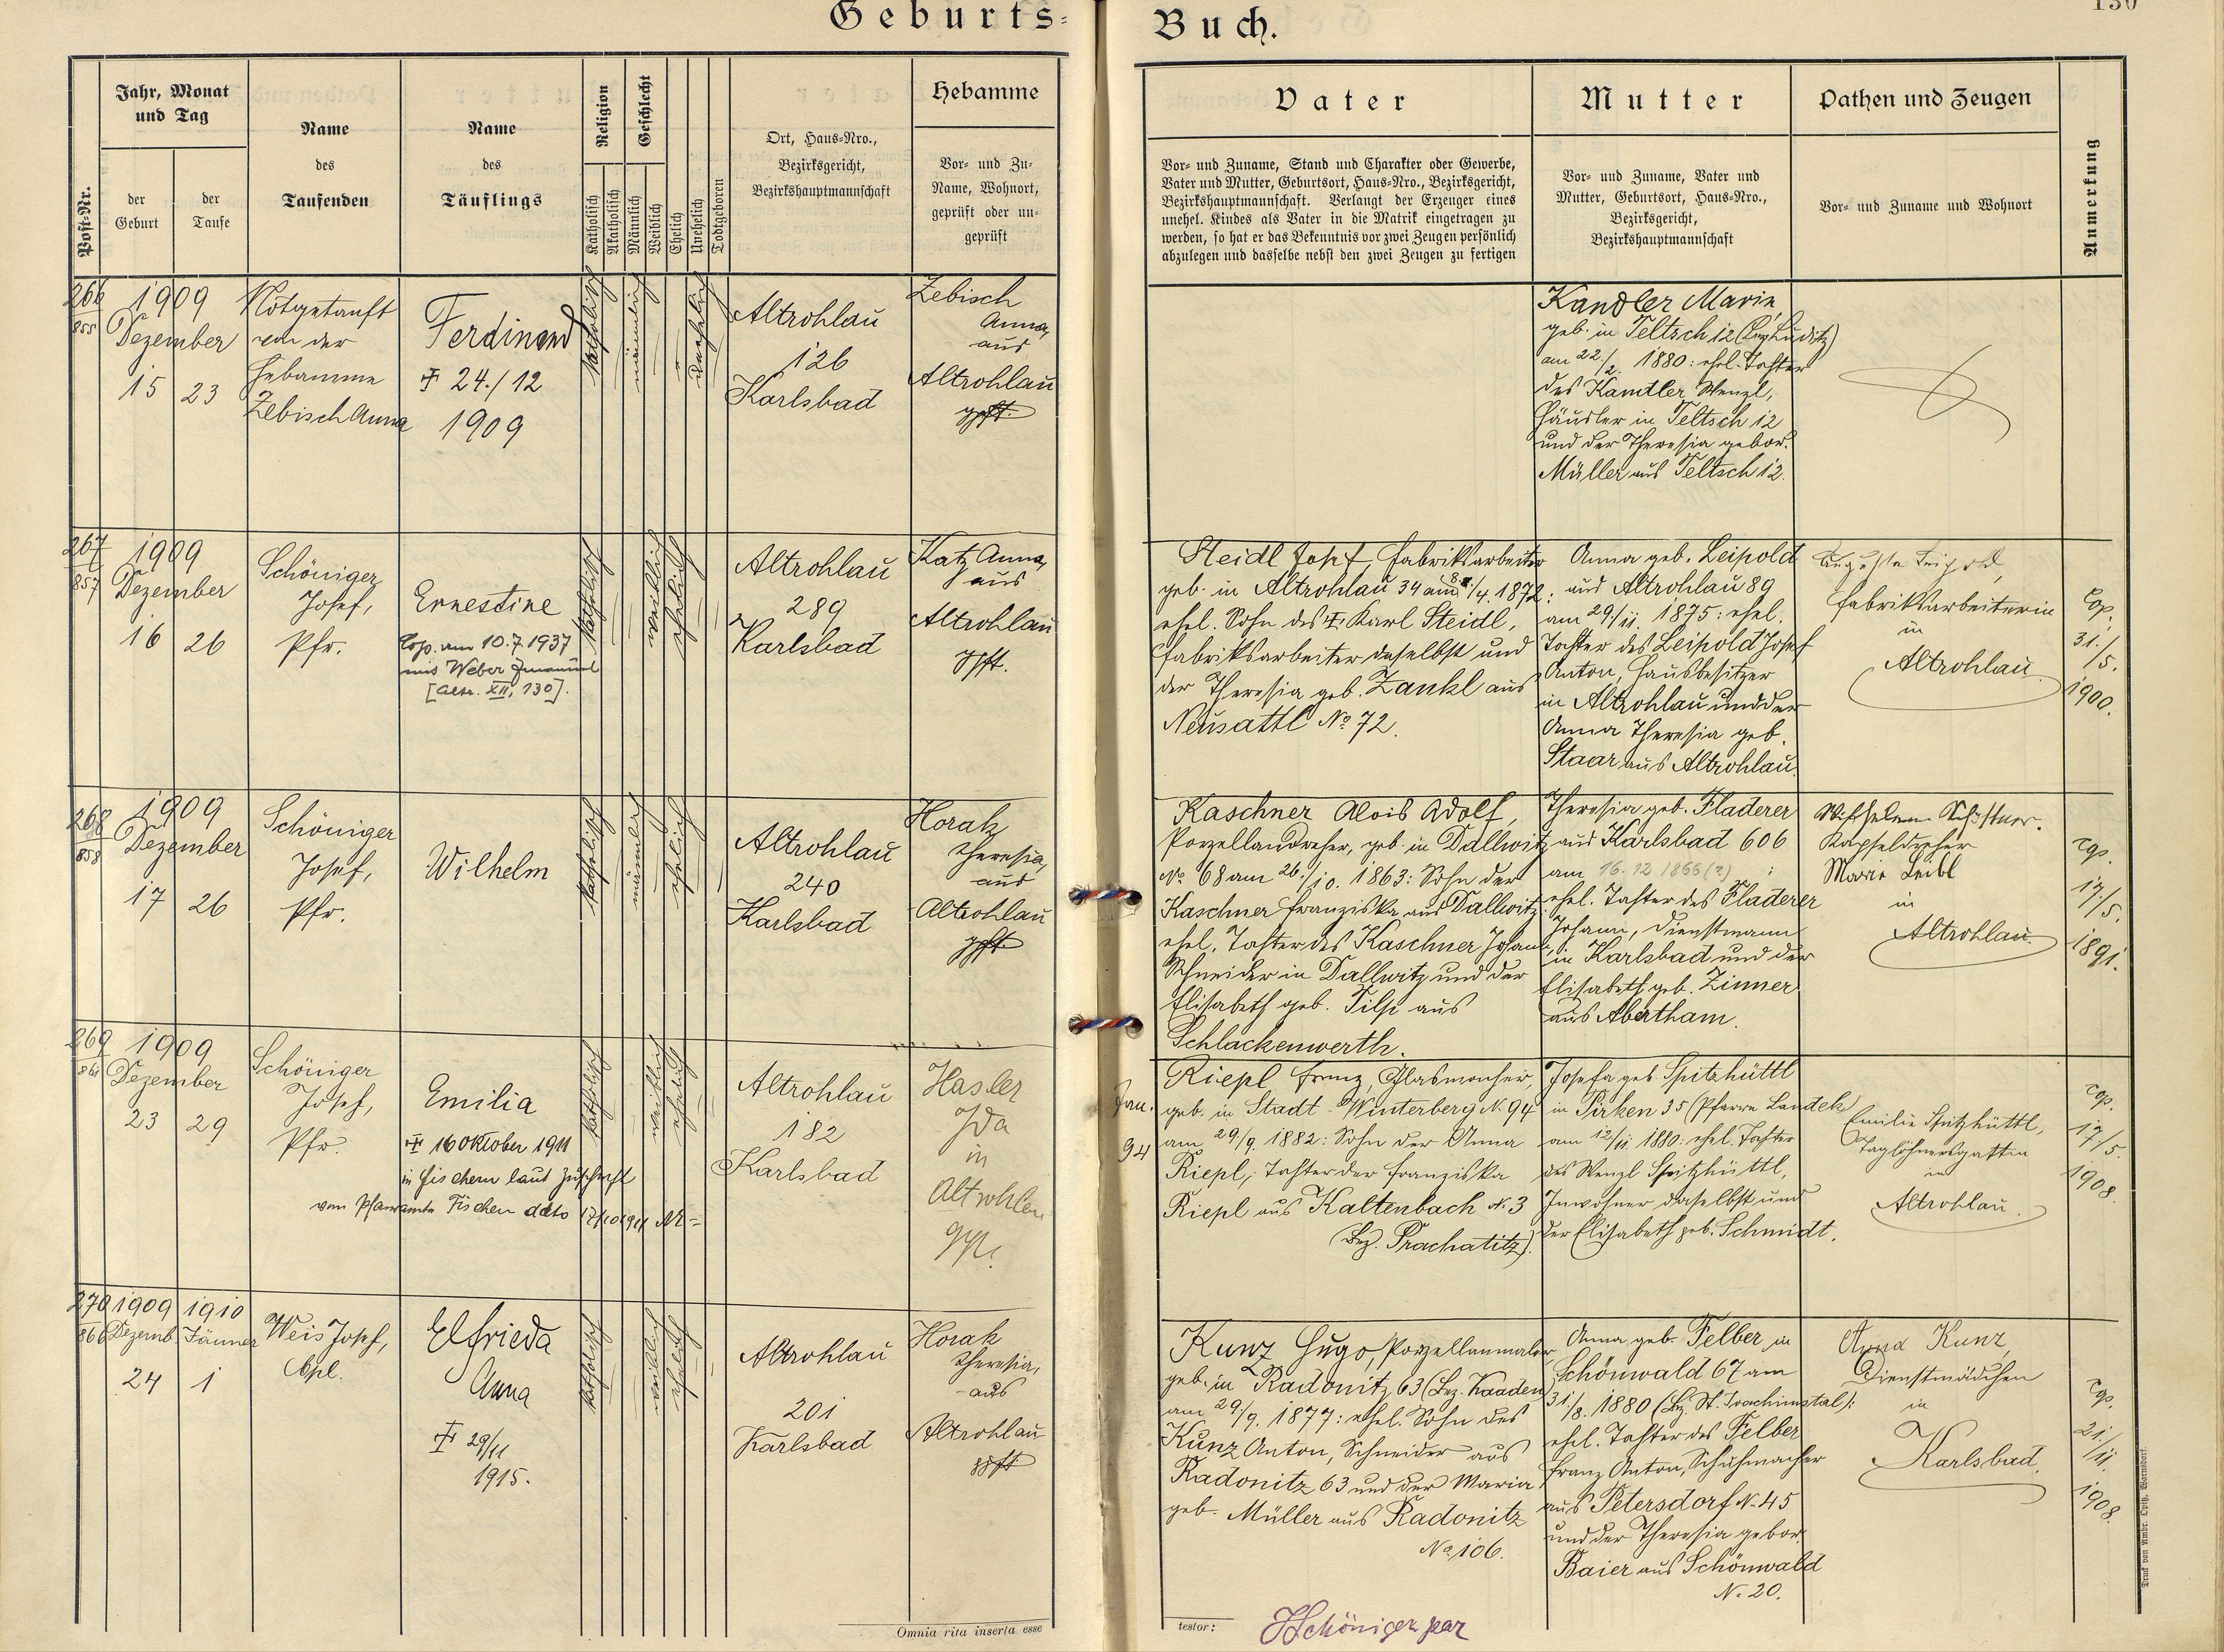 Geburts-
Buch.
130
Post-Nr.
Jahr, Monat
und Tag
der
Geburt
der
Taufe
Name
des
Taufenden
Name
des
Täuflings
Religion
Katholisch
Akatholisch
Geschlecht
Männlich
Weiblich
Ehelich
Unehelich
Todtgeboren
Ort, Haus-Nro.,
Bezirksgericht,
Bezirkshauptmannschaft
Hebamme
Vor- und Zu-
Name, Wohnort,
geprüft oder un-
geprüft
Vater
Vor- und Zuname, Stand und Charakter oder Gewerbe,
Vater und Mutter, Geburtsort, Haus-Nro., Bezirksgericht,
Bezirkshauptmannschaft. Verlangt der Erzeuger eines
unehel. Kindes als Vater in die Matrik eingetragen zu
werden, so hat er das Bekenntnis vor zwei Zeugen persönlich
abzulegen und dasselbe nebst den zwei Zeugen zu fertigen
Mutter
Vor- und Zuname, Vater und
Mutter, Geburtsort, Haus-Nro.,
Bezirksgericht,
Bezirkshauptmannschaft
Pathen und Zeugen
Vor- und Zuname und Wohnort
Anmerkung
266
855
1909
Dezember
15
23
Notgetauft
von der
Hebamme
Zebisch Anna
Ferdinand
† 24./12
1909
katholisch
männlich
unehelich
Altrohlau
126
Karlsbad
Zebisch
Anna,
aus
Altrohlau
gpft.
Kandler Marie,
geb. in Teltsch 12 (Bez. Luditz)
am 22./2. 1880: ehel. Tochter
des Kandler Wenzl,
Häusler in Teltsch 12
und der Theresia gebor.
Müller aus Teltsch 12.
267
857
1909
Dezember
16
26
Schöniger
Josef,
Pfr.
Ernestine
Cop. am 10.7.1937
mit Weber Emanuel
[Altr. XII, 130].
katholisch
weiblich
ehelich
Altrohlau
289
Karlsbad
Katz Anna,
aus
Altrohlau
gpft.
Steidl Josef, Fabriksarbeiter
geb. in Altrohlau 34 am 8./4. 1872:
ehel. Sohn des † Karl Steidl,
Fabriksarbeiter daselbst und
der Theresia geb. Zankl aus
Neusattl No 72.
Anna geb. Leipold
aus Altrohlau 89
am 29./11. 1875: ehel.
Tochter des Leipold Josef
Anton, Hausbesitzer
in Altrohlau und der
Anna Theresia geb.
Staar aus Altrohlau.
Auguste Leipold,
Fabriksarbeiterin
in
Altrohlau
Cop.
31./5.
1900.
268
858
1909
Dezember
17
26
Schöniger
Josef,
Pfr.
Wilhelm
katholisch
männlich
ehelich
Altrohlau
240
Karlsbad
Horak
Theresia,
aus
Altrohlau
gpft.
Kaschner Alois Adolf,
Porzellandreher, geb. in Dallwitz
No 68 am 26./10. 1863: Sohn der
Kaschner Franziska aus Dallwitz
ehel. Tochter des Kaschner Johann,
Schneider in Dallwitz und der
Elisabeth geb. Tilp aus
Schlackenwerth.
Theresia geb. Fladerer
aus Karlsbad 606
am 16.12.1866(?) :
ehel. Tochter des Fladerer
Johann, Dienstmann
in Karlsbad und der
Elisabeth geb. Zinner
aus Abertham.
Wilhelm
Kapseldreher
Marie Leibl
in
Altrohlau
cop.
17/5.
1891.
269
861
1909
Dezember
23
29
Schöniger
Josef,
Pfr.
Emilia
† 16 Oktober 1911
in Fischern laut Zuschrift
vom Pfarramte Fischern ddto 17/10 1911
katholisch
weiblich
ehelich
Altrohlau
182
Karlsbad
Hasler
Ida
in
Altrohlau
gpr.
Jan.
94
Riepl Franz, Glasmacher,
geb. in Stadt-Winterberg N. 94
am 29/9. 1882: Sohn der Anna
Riepl, Tochter der Franziska
Riepl aus Kaltenbach N. 3
(Bez. Prachatitz).
Josefa geb. Spitzhüttl
in Pirken 35 (Pfarre Landek
am 12/11. 1880: ehel. Tochter
des Wenzl Spitzhüttl,
Inwohner daselbst und
der Elisabeth geb. Schmidt.
Emilie Spitzhüttl,
Taglöhnersgattin
in
Altrohlau.
cop.
17/5.
1908.
270
866
1909
Dezemb.
24
1910
Jänner
1
Weis Josef,
Cpl.
Elfrieda
Anna
† 29/11
1915.
katholisch
weiblich
ehelich
Altrohlau
201
Karlsbad
Horak
Theresia,
aus
Altrohlau
gpft.
Kunz Hugo, Porzellanmaler,
geb. in Radonitz 63 (Bez. Kaaden)
am 29./9. 1877: ehel. Sohn des
Kunz Anton, Schneider aus
Radonitz 63 und der Maria
geb. Müller aus Radonitz
No 106.
Anna geb. Felber in
Schönwald 67 am
31/8. 1880 (Bez. St. Joachimstal):
ehel. Tochter des Felber
Franz Anton, Schuhmacher
aus Petersdorf N. 45
und der Theresia gebor.
Baier aus Schönwald
N. 20.
Anna Kunz,
Dienstmädchen
in
Karlsbad.
cop.
21./11.
1908.
Omnia rita inserta esse
testor:
JSchöniger par
Druck von Ambr. Opitz, Warnsdorf.